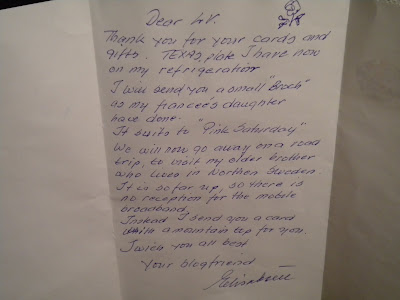 Dear LV.
Thank you for your cards and
gifts. TEXAS plate I have now
on my refrigeration
I will send you a small "Broch"
as my francee's daughter
have done.
It suits to "Pink Saturday"
We will now go away on a road
trip, to visit my older brother
who lives in Northern Sweden.
It is so far up, so there is
no reception for the mobile
broadband.
Instead I send you a card
with a mountain top for you.
I wish you all best
Your blogfriend
Elisabeth